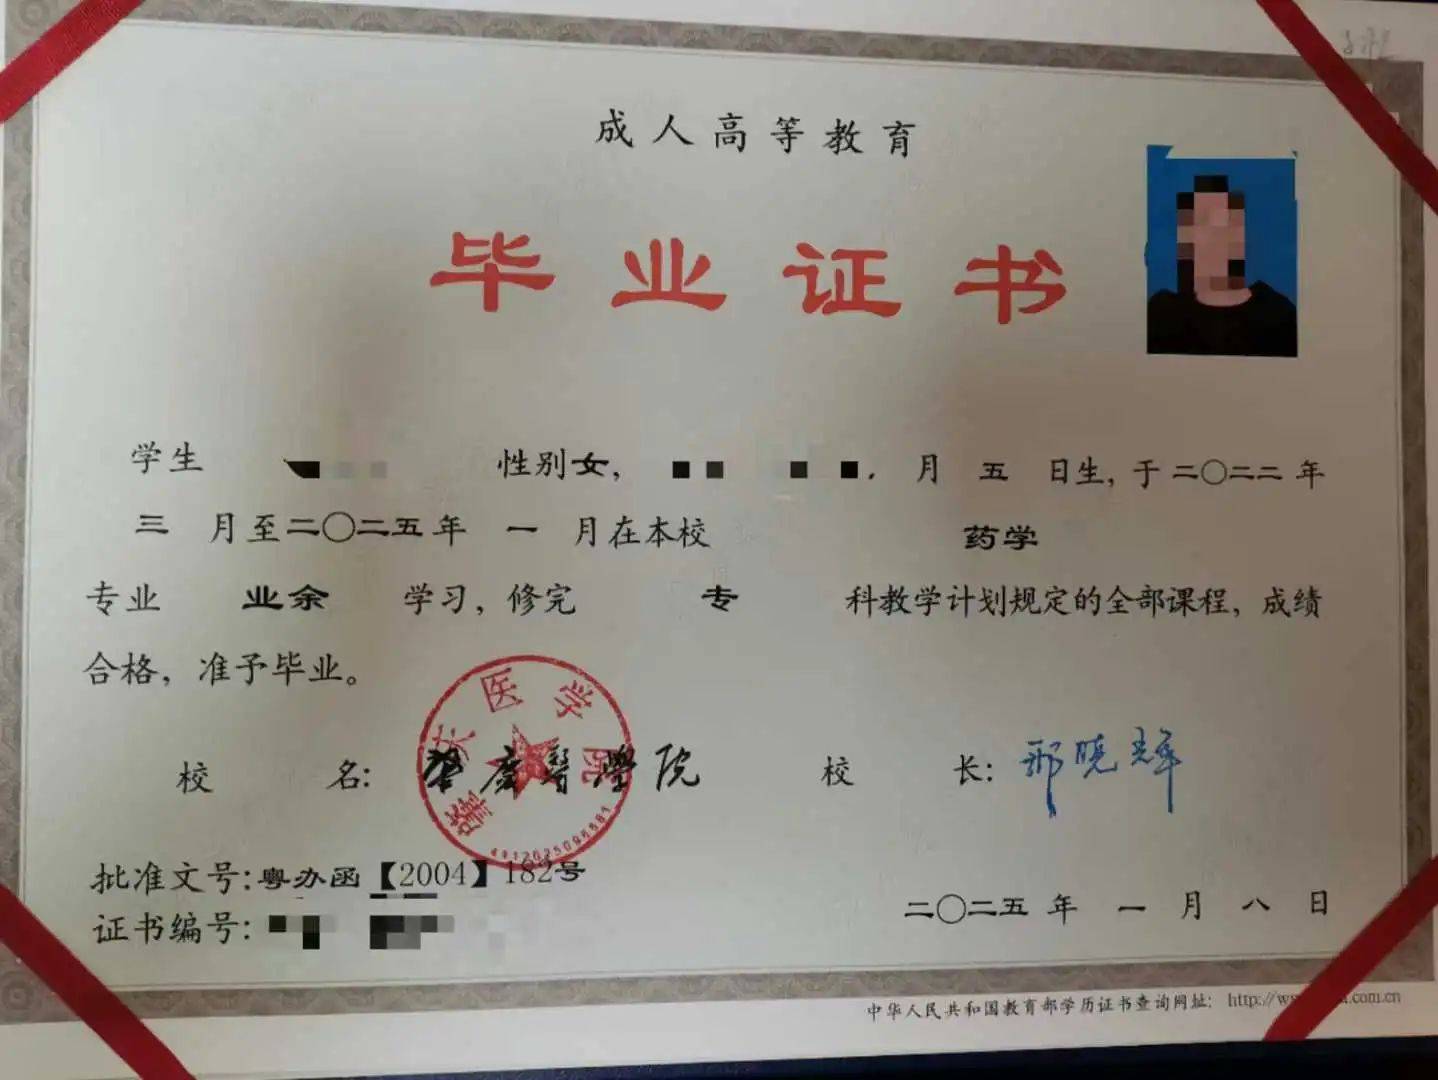 成人高等教育
毕业证书
学生 性别女, 月 五 日生, 于 二〇二二 年
三 月至二〇二五年 一 月在本校 药学
专业 业余 学习, 修完 专 科教学计划规定的全部课程, 成绩
合格, 准予毕业。
医学院
校 名: 肇庆醫學院 校 长: 邢晓辉
批准文号: 粤办函【2004】182号
二〇二五 年 一 月 八 日
证书编号:
中华人民共和国教育部学历证书查询网址: http://w .com.cn